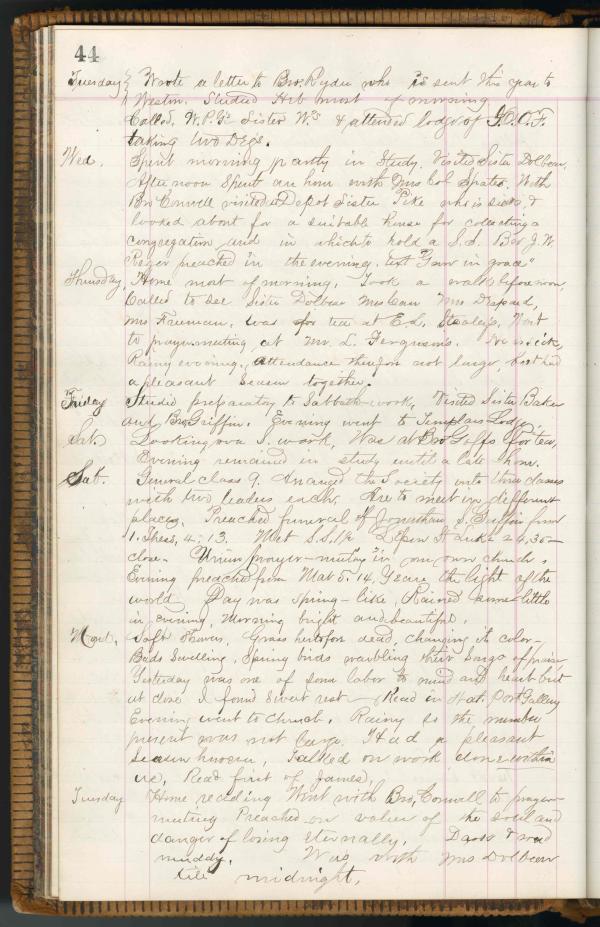 44
Tuesday Wrote a letter to Bro. Ryder who is sent this year to
Weston. Studied Heb most of morning
Called. W.P.G's Sister W's & attended lodge of I.O.O.F.
taking two Degs.
Wed. Spent morning partly in Study. Visited Sister Dolbear.
Afternoon Spent an hour with Mrs Col Spates. With
Bro Connell visited at Depot Sister Pike who is sick, &
looked about for a suitable house for collecting a
congregation and in which to hold a S.S. Bro J. W.
preached in the evening. text "Grow in grace"
Thursday, Home most of morning. Took a walk before noon,
Called to see Sister Dolbear Mrs Mrs
Mrs Freeman, was for tea at E.L. Staley's, Went
to prayer-meeting at Mr. L. Ferguson's. He is sick,
Rainy evening, attendance therefore not large, but had
a pleasant season together.
Friday Studied preparatory to Sabbath-work, Visited Sister Baker
and Bro Griffin. Evening went to Templar Lodge
Sat. Looking over S. work, Was at Bro Goffs for tea,
Evening remained in study until a late hour.
Sat. General class 9. Arranged the Society into three classes
with two leaders each. Are to meet in different
places. Preached funeral of Jonathan S. Griffin from
1. Thess, 4; 13. Met S.S. Lesson St Luke 24, 36-
close. Union prayer-meeting in our own church.
Evening preached from Mat 5. 14, Ye are the light of the
world. Day was Spring-like Rained some little
in evening, Morning bright and beautiful.
Mond, Soft Showers, Grass heretofore dead, changing its color-
Buds Swelling, Spring birds warbling their songs of praise
Yesterday was one of some labor to mind and heart but
at close I found sweet rest Read in Nat. Port Gallery
Evening went to church. Rainy so the number
present was not large. Had a pleasant
Season however, Talked on work done within
us, Read first of James,
Tuesday Home reading Went with Bro, Connell to prayer-
meeting Preached on value of the soul and
danger of losing eternally, Dark & road
muddy, Was with Mrs Dolbear
till midnight,